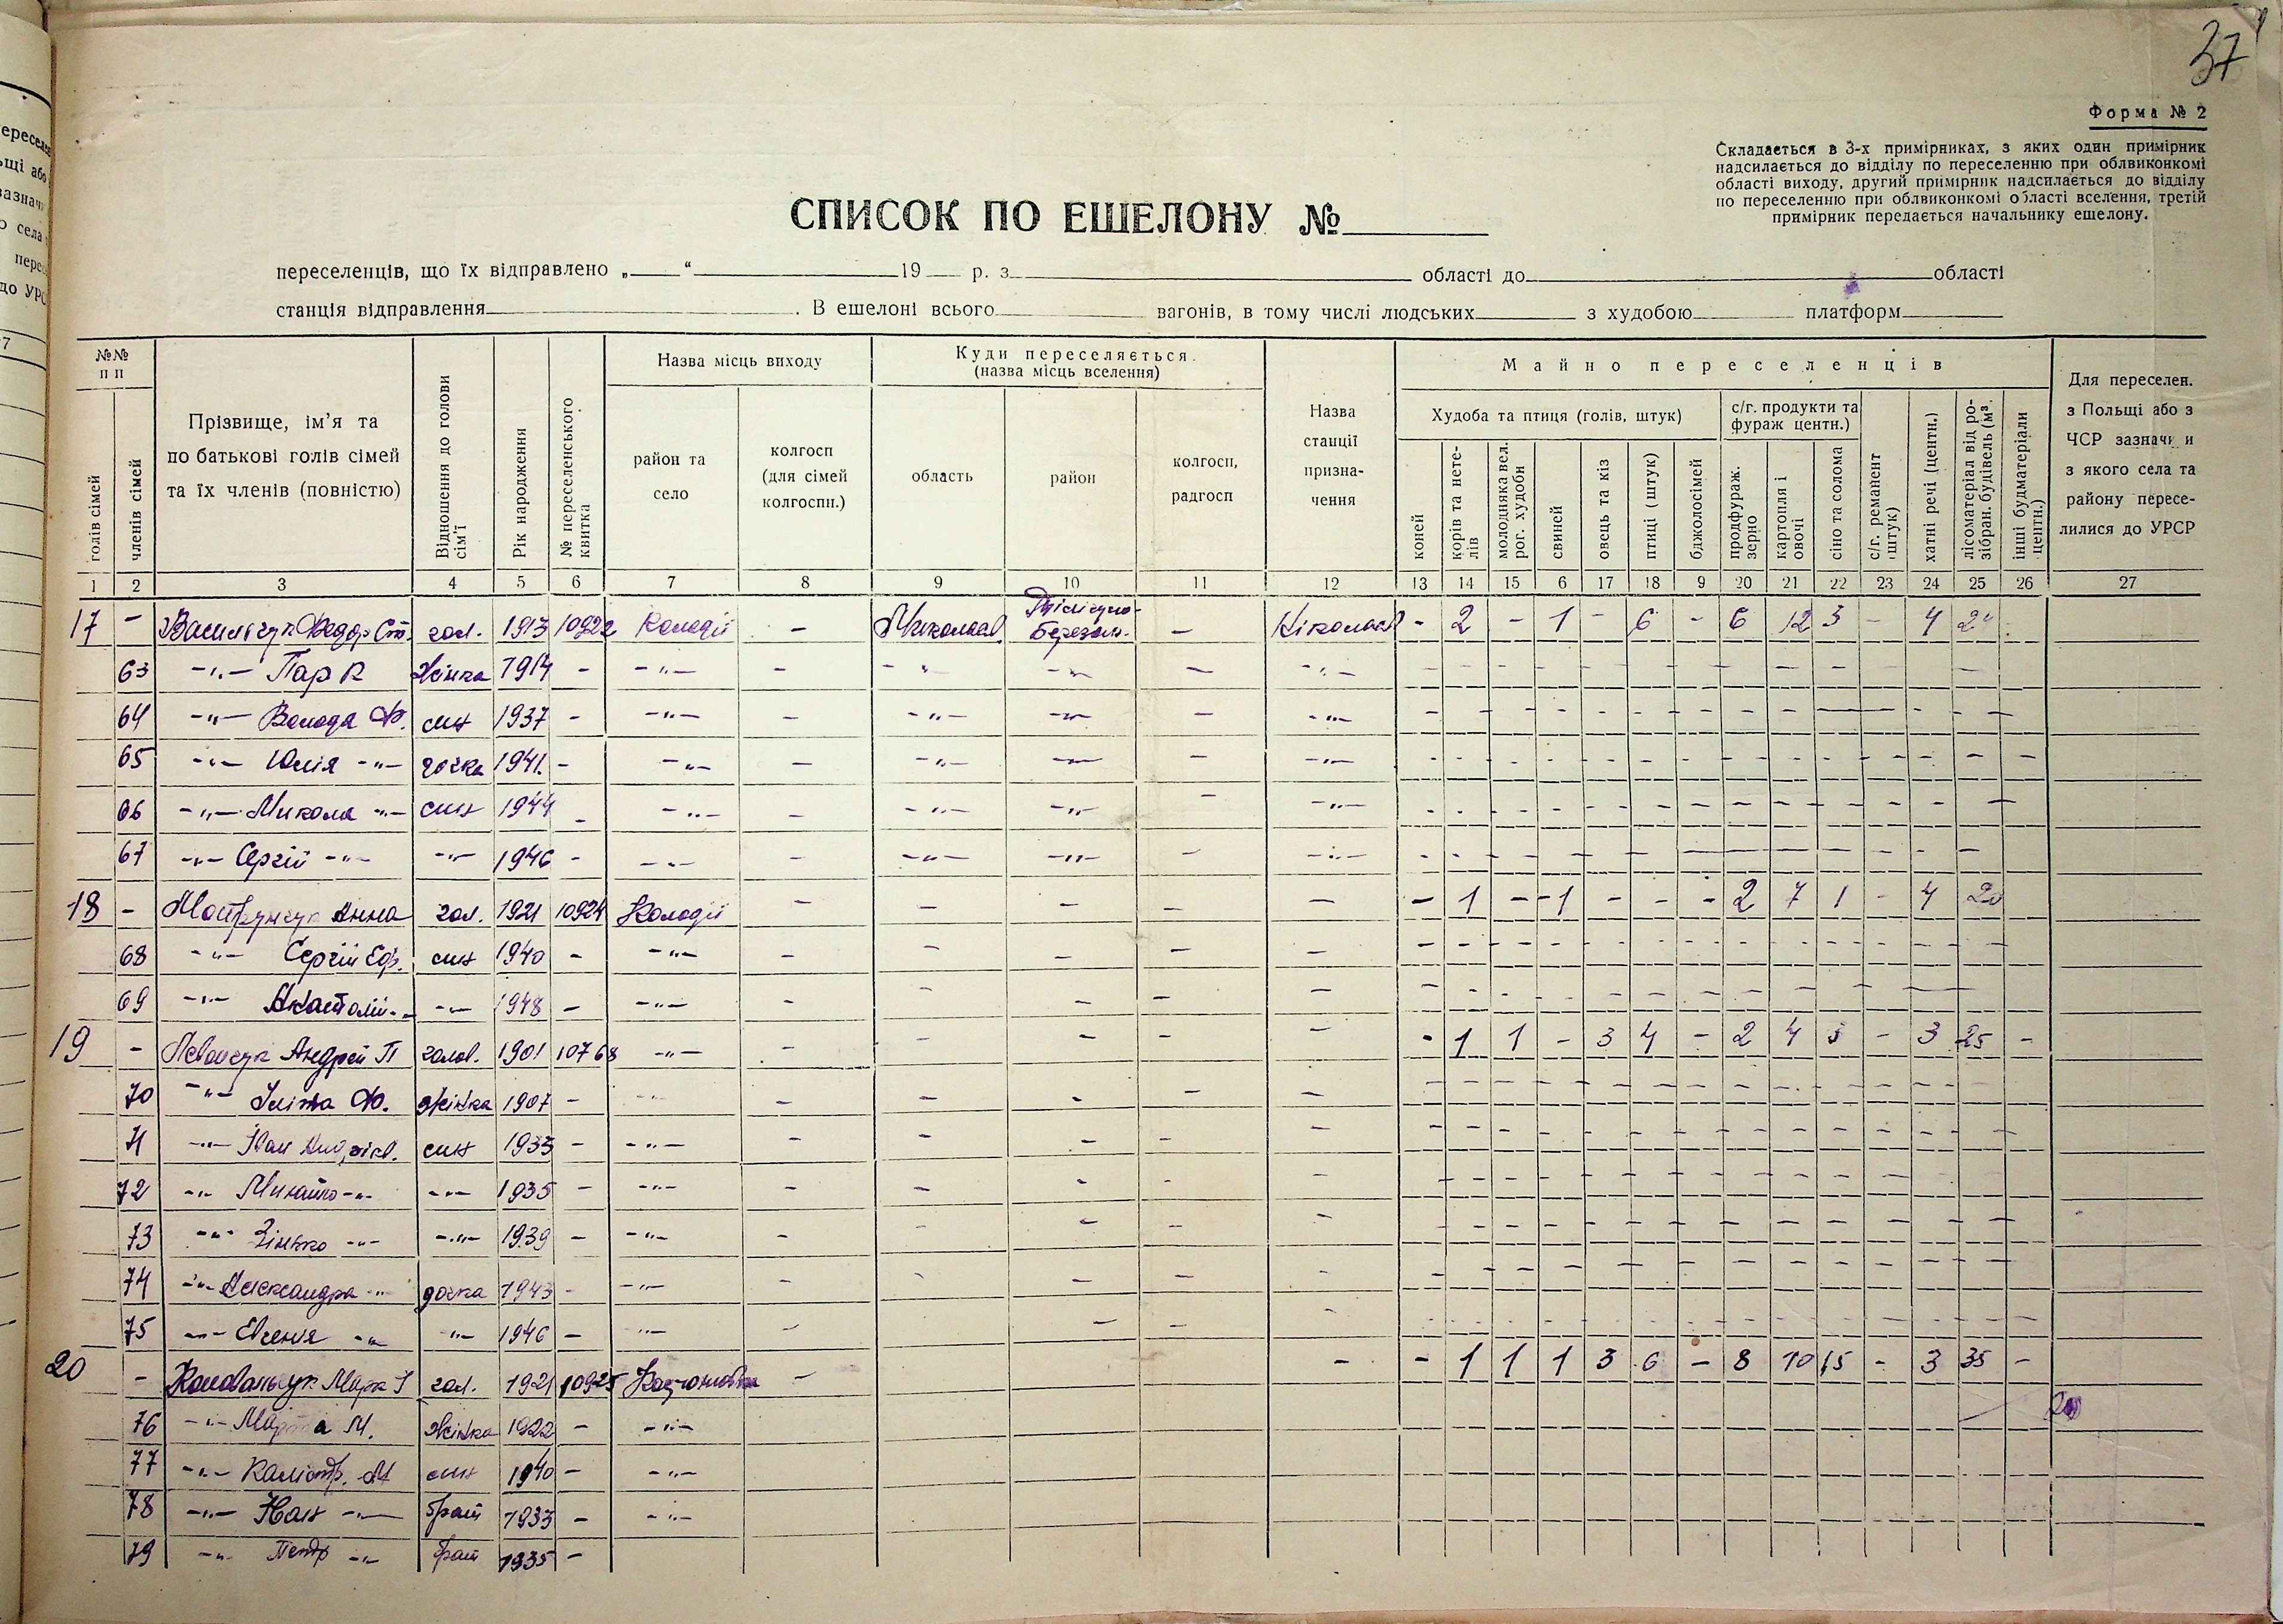 37
Форма № 2
Складається в 3-х примірниках, з яких один примірник
надсилається до відділу по переселенню при облвиконкомі
області виходу, другий примірник надсилається до відділу
по переселенню при облвиконкомі області вселення, третій
примірник передається начальнику ешелону.
СПИСОК ПО ЕШЕЛОНУ №
переселенців, що їх відправлено „ “ 19 р. з області до області
станція відправлення . В ешелоні всього вагонів, в тому числі людських з худобою платформ
№№ п п
голів сімей
членів сімей
Прізвище, ім'я та по батькові голів сімей та їх членів (повністю)
Відношення до голови сім'ї
Рік народження
№ переселенського квитка
Назва місць виходу
район та село
колгосп (для сімей колгоспн.)
Куди переселяється. (назва місць вселення)
область
район
колгосп, радгосп
Назва станції призна- чення
Майно переселенців
Худоба та птиця (голів, штук)
коней
корів та нете- лів
молодняка вел. рог. худоби
свиней
овець та кіз
птиці (штук)
бджолосімей
с/г. продукти та фураж центн.)
продфураж. зерно
картопля і овочі
сіно та солома
с/г. реманент штук)
хатні речі (центн.)
лісоматеріал від ро- зібран. будівель (м³.
інші будматеріали центн.)
Для переселен. з Польщі або з ЧСР зазначи и з якого села та району пересе- лилися до УРСР
1 2 3 4 5 6 7 8 9 10 11 12 13 14 15 6 17 18 9 20 21 22 23 24 25 26 27
17 - Васильчук Федор Ст. гол. 1913 10922 Колодії - Миколаїв Березан. - Ніколаїв - 2 - 1 - 6 - 6 12 3 - 4
63 -"- Пар К жінка 1914 - -"- - -"- -"- - -"-
64 -"- Володя Ф. син 1937 - -"- - -"- -"- - -"-
65 -"- Юлія -"- дочка 1941. - -"- - -"- -"- - -"-
66 -"- Микола -"- син 1944 - -"- - -"- -"- - -"-
67 -"- Сергій -"- -"- 1946 - -"- - -"- -"- - -"-
18 - Анна гол. 1921 10924 Колодії - - - - - - 1 - -1 - - - 2 7 1 - 4 20
68 -"- Сергій Єф. син 1940 - -"- - - - - -
69 -"- Анатолій -"- -"- 1948 - -"- - - - - -
19 - Андрей П голов. 1901 10768 -"- - - - - - - 1 1 - 3 4 - 2 4 - 3 25 -
70 -"- Ф. жінка 1907 - -"- - - - - -
71 -"- Іван син 1933 - -"- - - - - -
72 -"- Михайло -"- -"- 1935 - -"- - - - -
73 -"- Зінько -"- -"- 1939 - -"- - - - - -
74 -"- Александра -"- дочка 1943 - -"- - - - -
75 -"- Євгенія -"- -"- 1946 - -"- - - - -
20 - Марк І гол. 1921 10925 - - - 1 1 1 3 6 - 8 10 15 - 3 35 -
76 -"- Марта М. жінка 1922 - -"-
77 -"- М син 1940 - -"-
78 -"- Іван -"- брат 1933 - -"-
79 -"- Петр -"- брат 1935 -